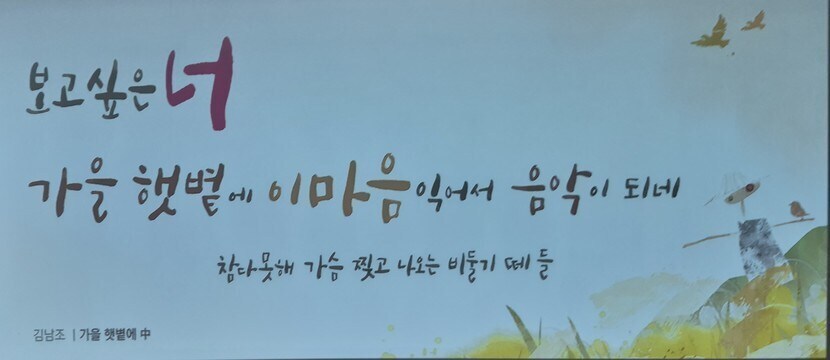 보고싶은 너
가을 햇볕에 이마음 익어서 음악이 되네
참다못해 가슴 찢고 나오는 비둘기 떼들
김남조 | 가을 햇볕에 中